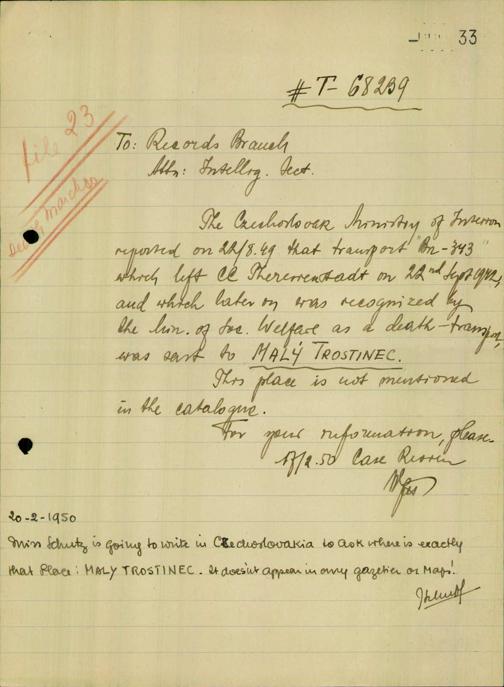 33
# T- 68239
file 23
Death Marches
To: Records Branch
Attn: Intellig. Sect.
The Czechoslovak Ministry of Interior
reported on 22/8.49 that transport "Bn-343"
which left CC Theresienstadt on 22nd Sept 1942,
and which later on was recognized by
the Min. of Soc. Welfare as a death-transport,
was sent to MALÝ TROSTINEC.
This place is not mentioned
in the catalogue.
For your information, please
17/2.50 Case Review
20-2-1950
Miss Schutz is going to write in Czechoslovakia to ask where is exactly
that Place: MALY TROSTINEC. It doesn't appear in any gazetier or Maps!